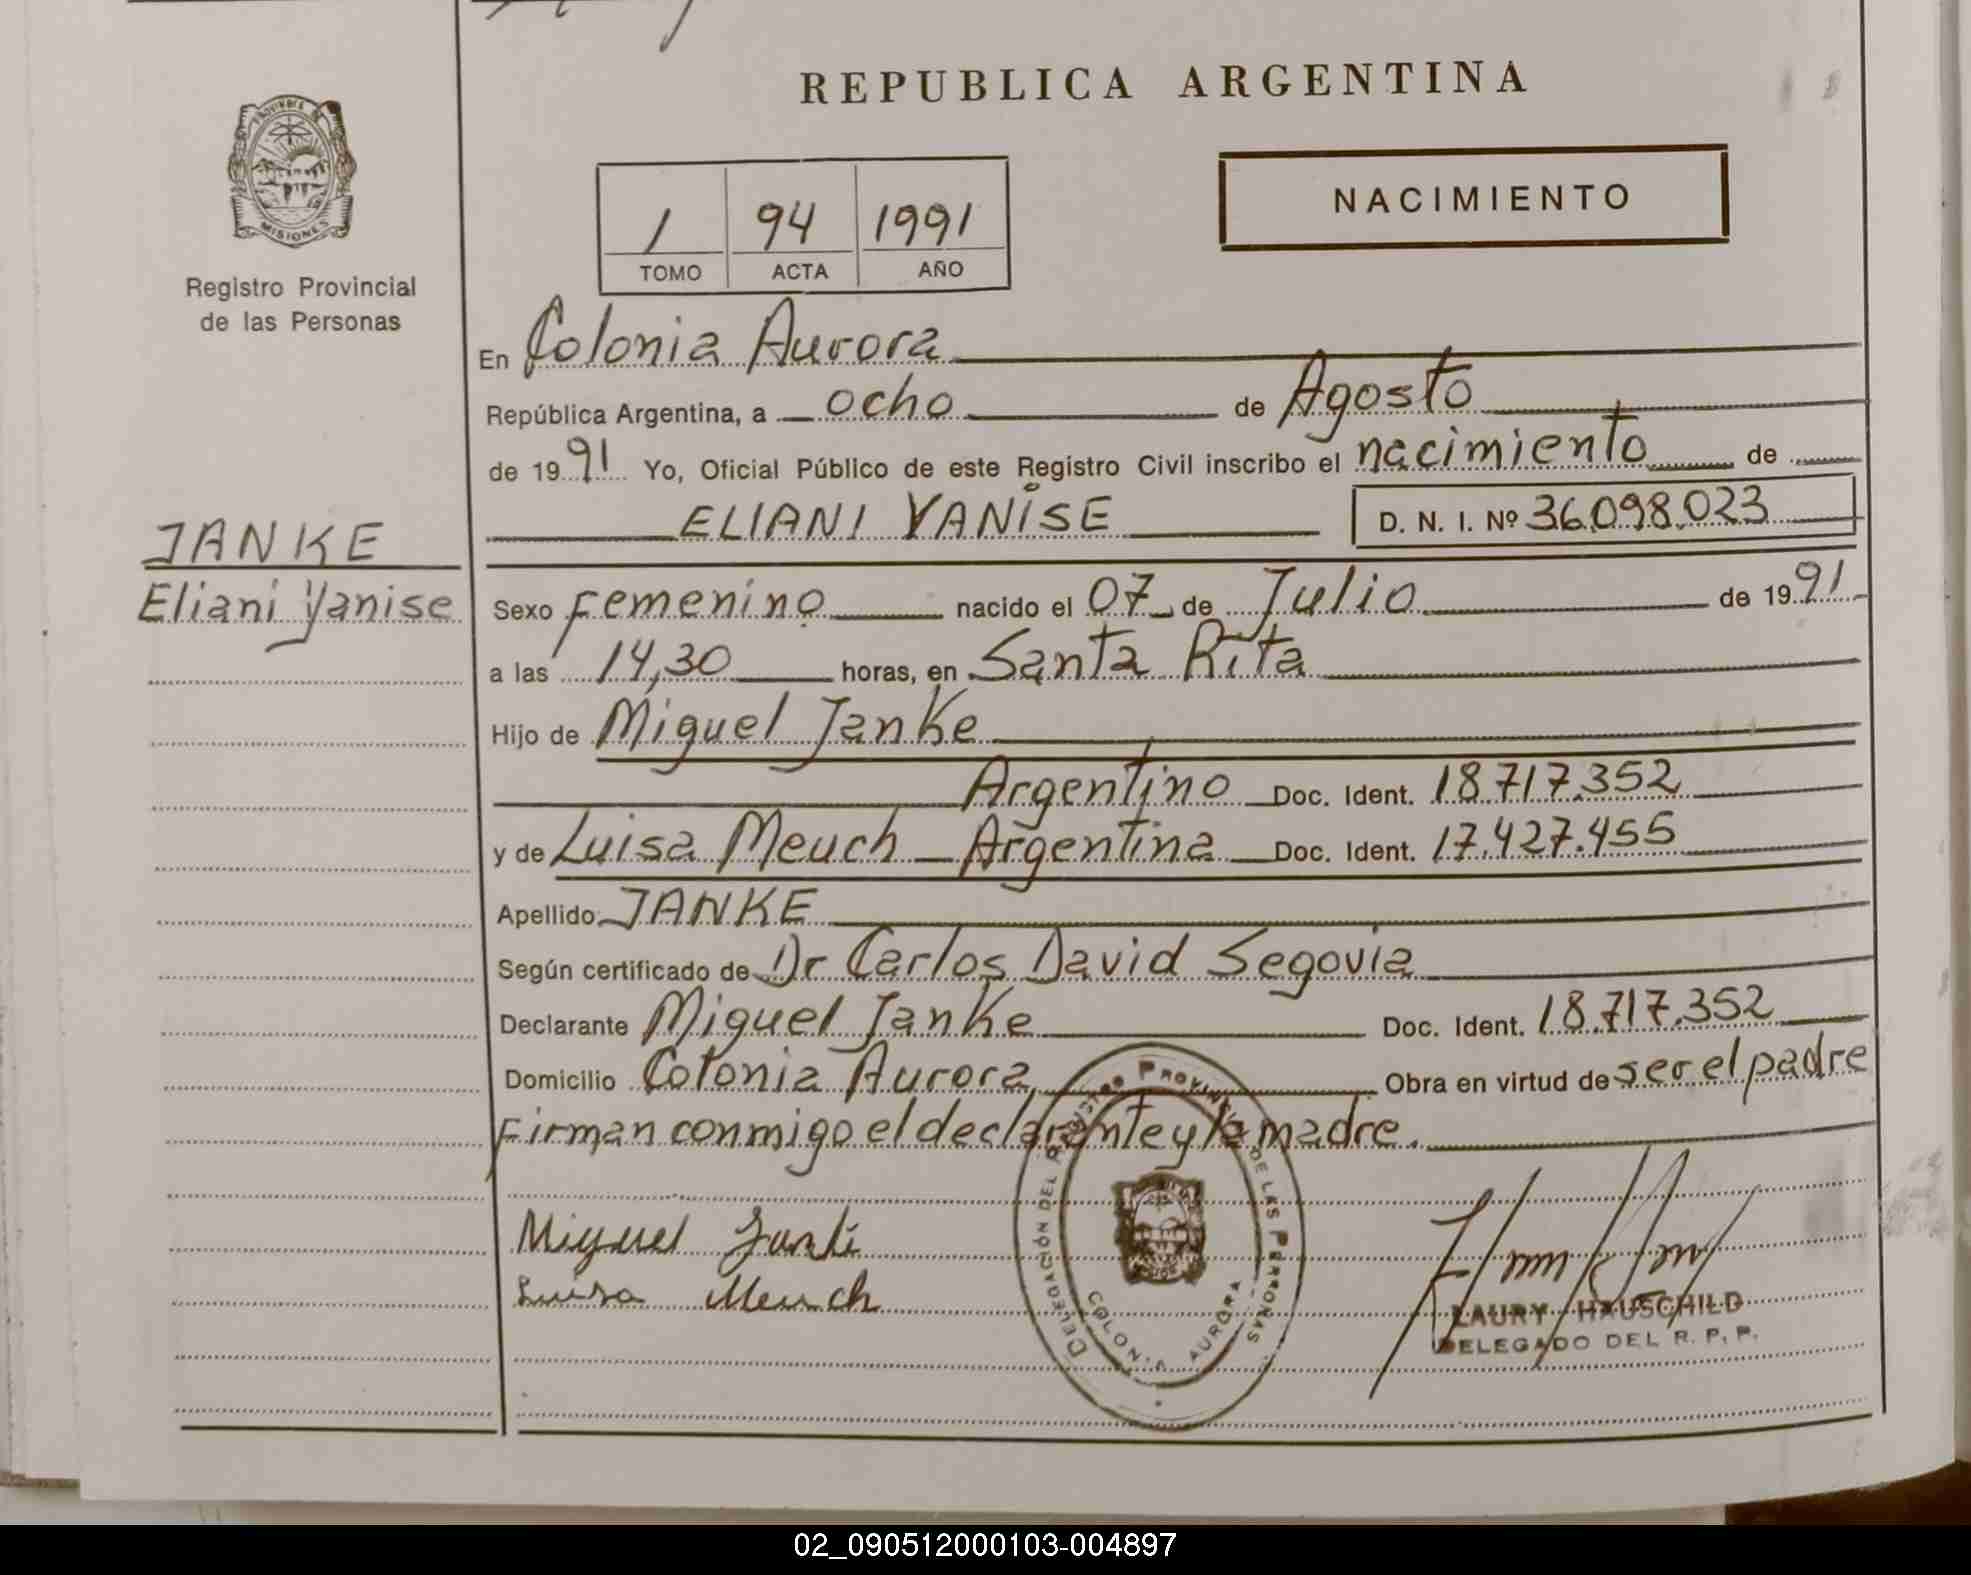 REPUBLICA ARGENTINA
PROVINCIA DE
MISIONES
Registro Provincial
de las Personas
1 94 1991
TOMO ACTA AÑO
NACIMIENTO
En Colonia Aurora
República Argentina, a ocho de Agosto
de 1991 Yo, Oficial Público de este Registro Civil inscribo el nacimiento de
ELIANI YANISE D. N. I. Nº 36.098.023
JANKE
Eliani Yanise
Sexo Femenino nacido el 07 de Julio de 1991
a las 14,30 horas, en Santa Rita
Hijo de Miguel Janke
Argentino Doc. Ident. 18.717.352
y de Luisa Meuch Argentina Doc. Ident. 17.427.455
Apellido JANKE
Según certificado de Dr Carlos David Segovia
Declarante Miguel Janke Doc. Ident. 18.717.352
Domicilio Colonia Aurora Obra en virtud de ser el padre
Firman conmigo el declarante y la madre.
Miguel Janke
Luisa Meuch
DELEGACIÓN DEL REGISTRO PROVINCIAL DE LAS PERSONAS
COLONIA AURORA
LAURY HAUSCHILD
DELEGADO DEL R. P. P.
02_090512000103-004897